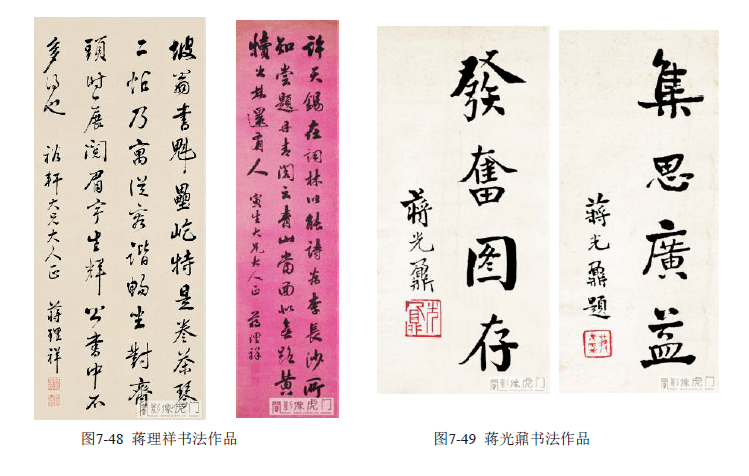 坡翁書魁壘屹特是卷茶琴
二帖乃寓從容諧暢坐對齋
頭時一展閱眉宇生輝公書中不
多得也 裕軒大兄大人正 蔣理祥
許天錫在詞林以能詩 李長沙所
知嘗題丹青閣云青山當面如無路黃
犢出林還有人 寅生大兄大人正 蔣理祥
發奮图存
蔣光鼐
集思廣益
蔣光鼐題
影像虎门
影像虎门
影像虎门
影像虎门
图7-48 蒋理祥书法作品
图7-49 蒋光鼐书法作品